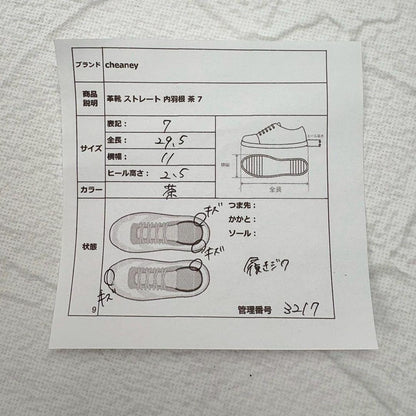 ブランド cheaney
商品説明 革靴 ストレート 内羽根 茶 7
サイズ
表記： 7
全長： 29.5
横幅： 11
ヒール高さ： 2.5
ヒール高さ
横幅
全長
カラー 茶
状態
キズ
キズ
キズ
つま先：
かかと：
ソール：
履きジワ
9
管理番号 3217